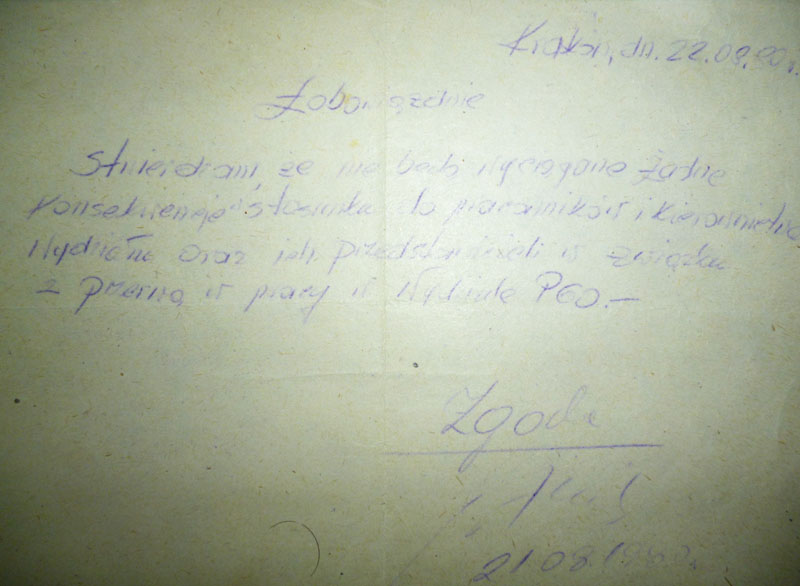 Kraków, dn. 22.08.80 r.
Zobowiązanie
Stwierdzam, że nie będą wyciągane żadne
konsekwencje w stosunku do pracowników i kierownictwa
Wydziału oraz ich przedstawicieli w związku
z przerwą w pracy w Wydziale P60.-
Zgoda
21.08.1980r.